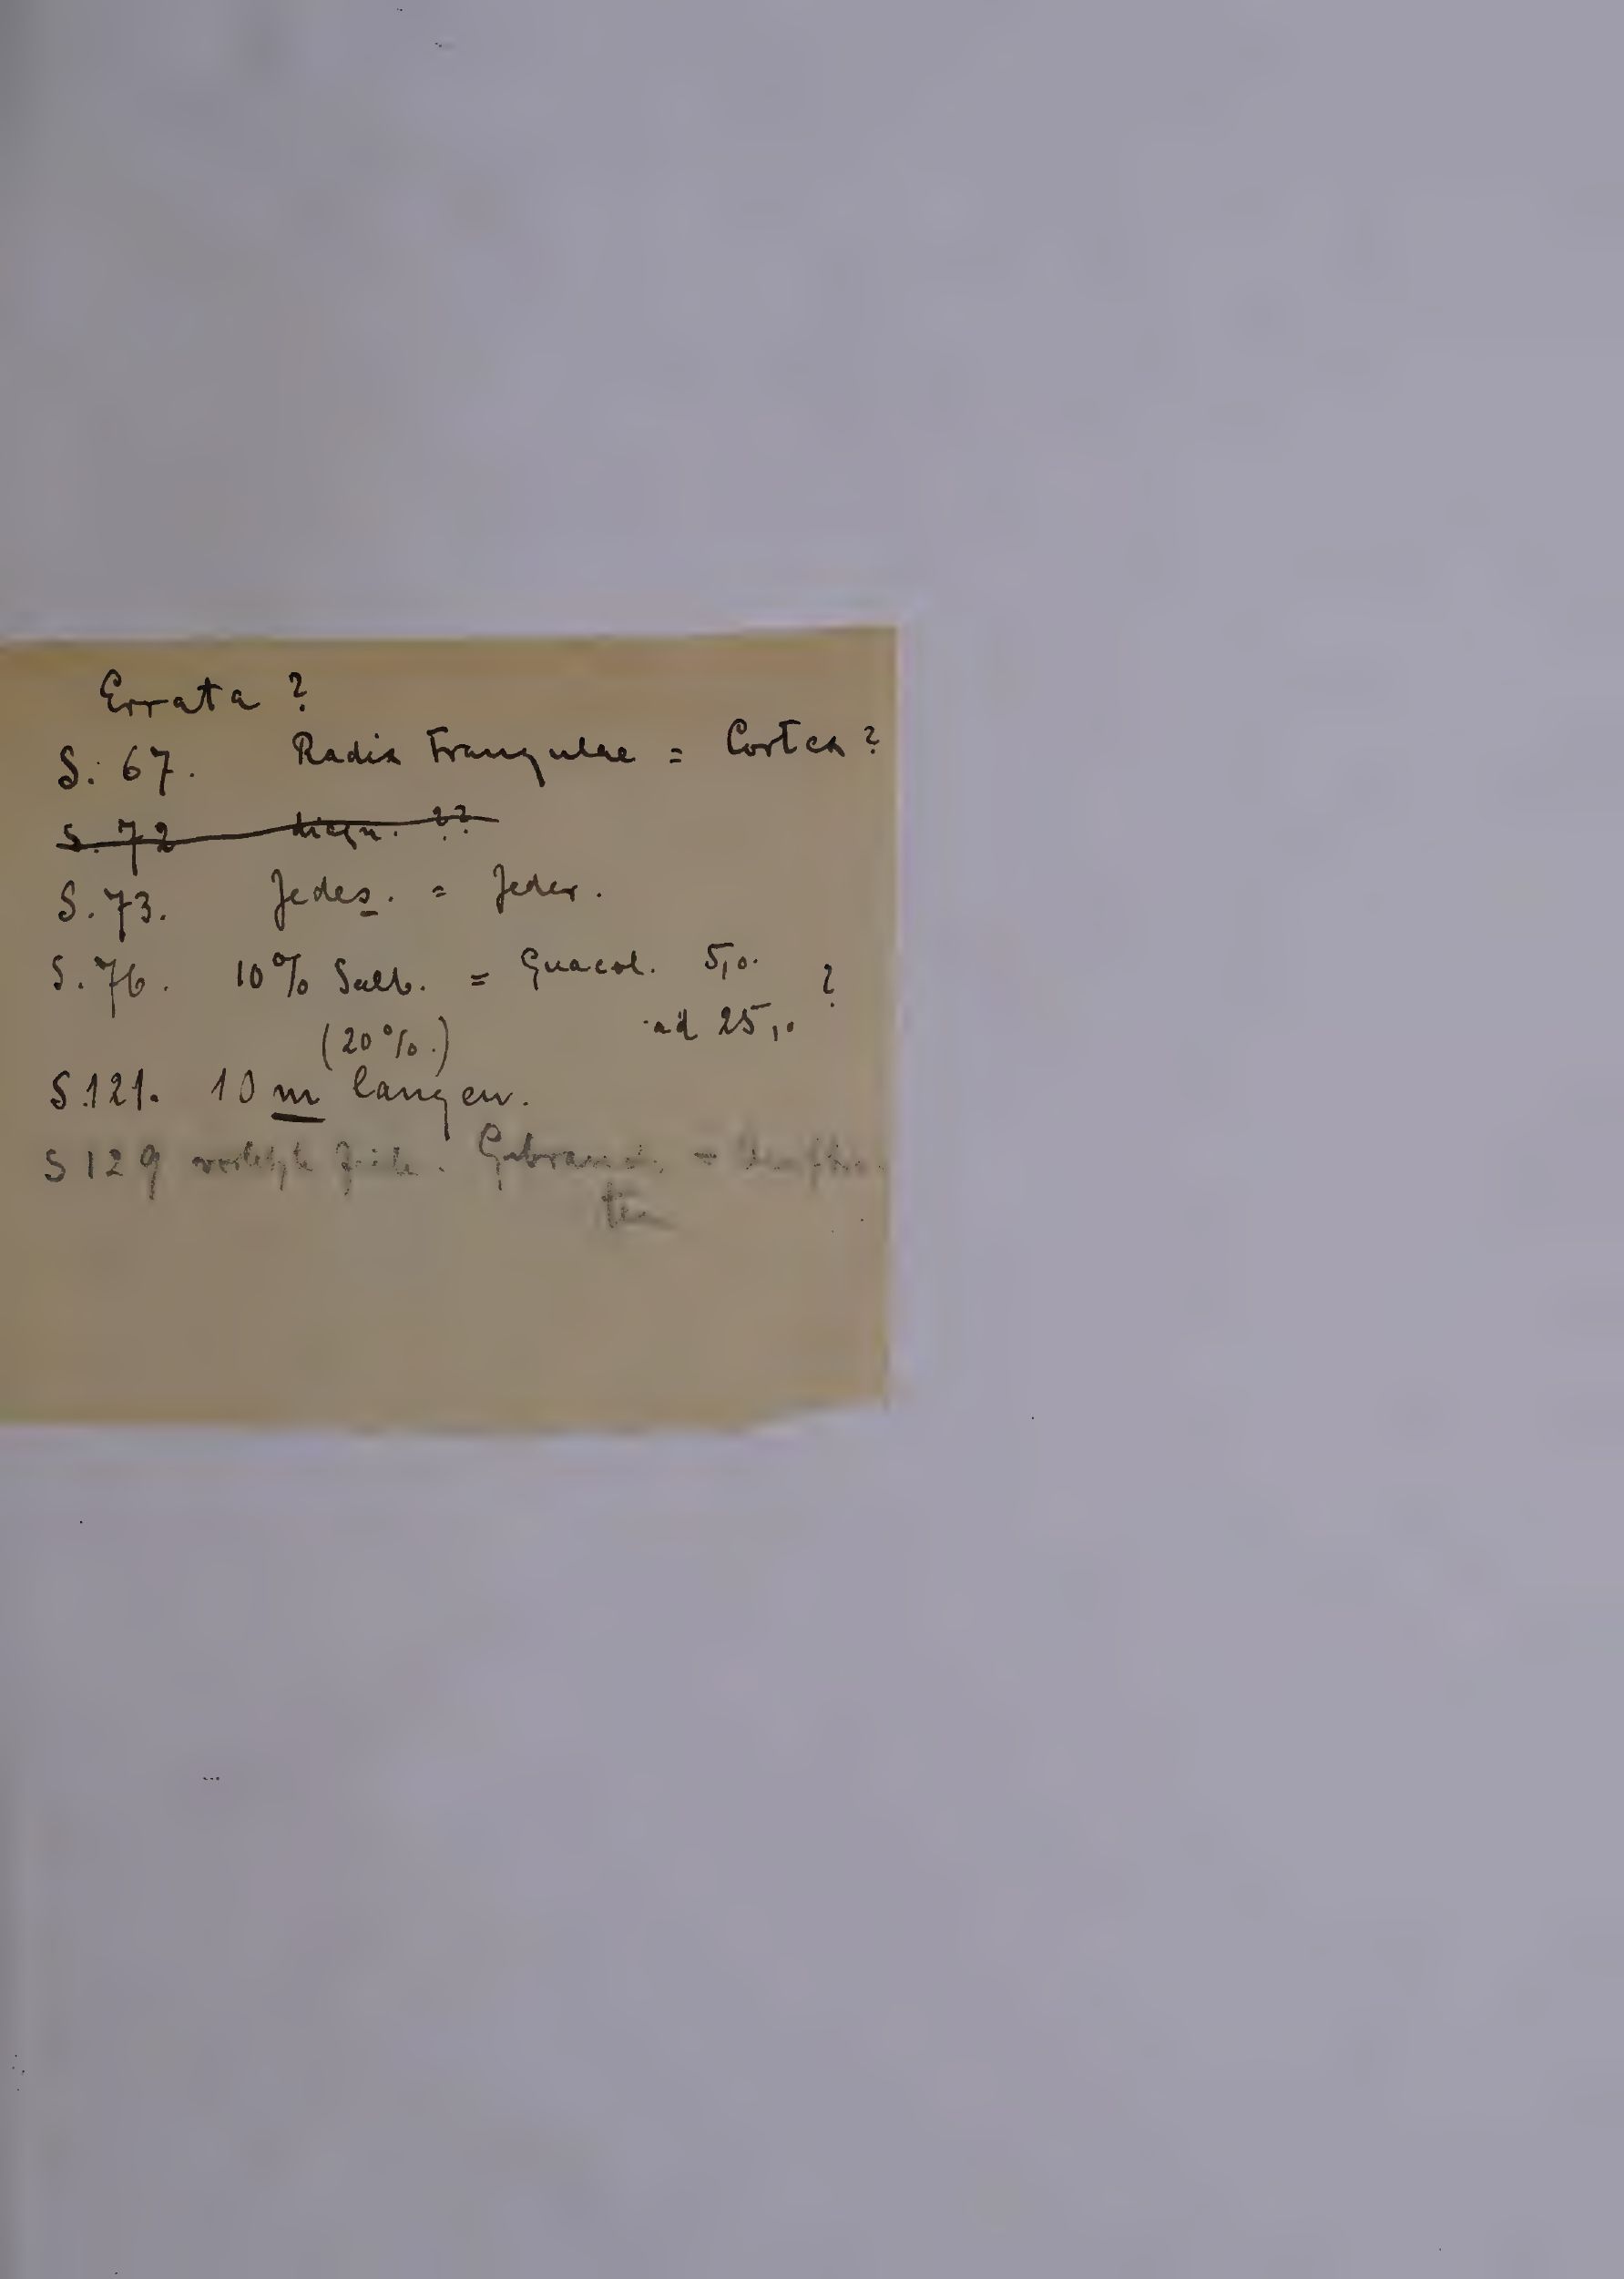 Errata ?
S. 67. Radix Frangulae = Cortex ?
S. 72 ??
S. 73. Jedes. = Jeder.
S. 76. 10% Salb. = Guacol. 5,0. ?
(20%.) ad 25,0
S.121. 10 m langen.
S 129 vorletzte Zeile. =